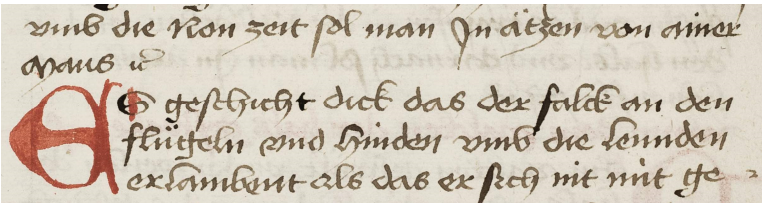 vmb die Non zeit sol man Jn ätzen von ainer
Maus ꝛc
ES geschicht dick das der falck an den
flügeln vnd hinden vmb die lennden
erlambent als das er sich nit mit ge-